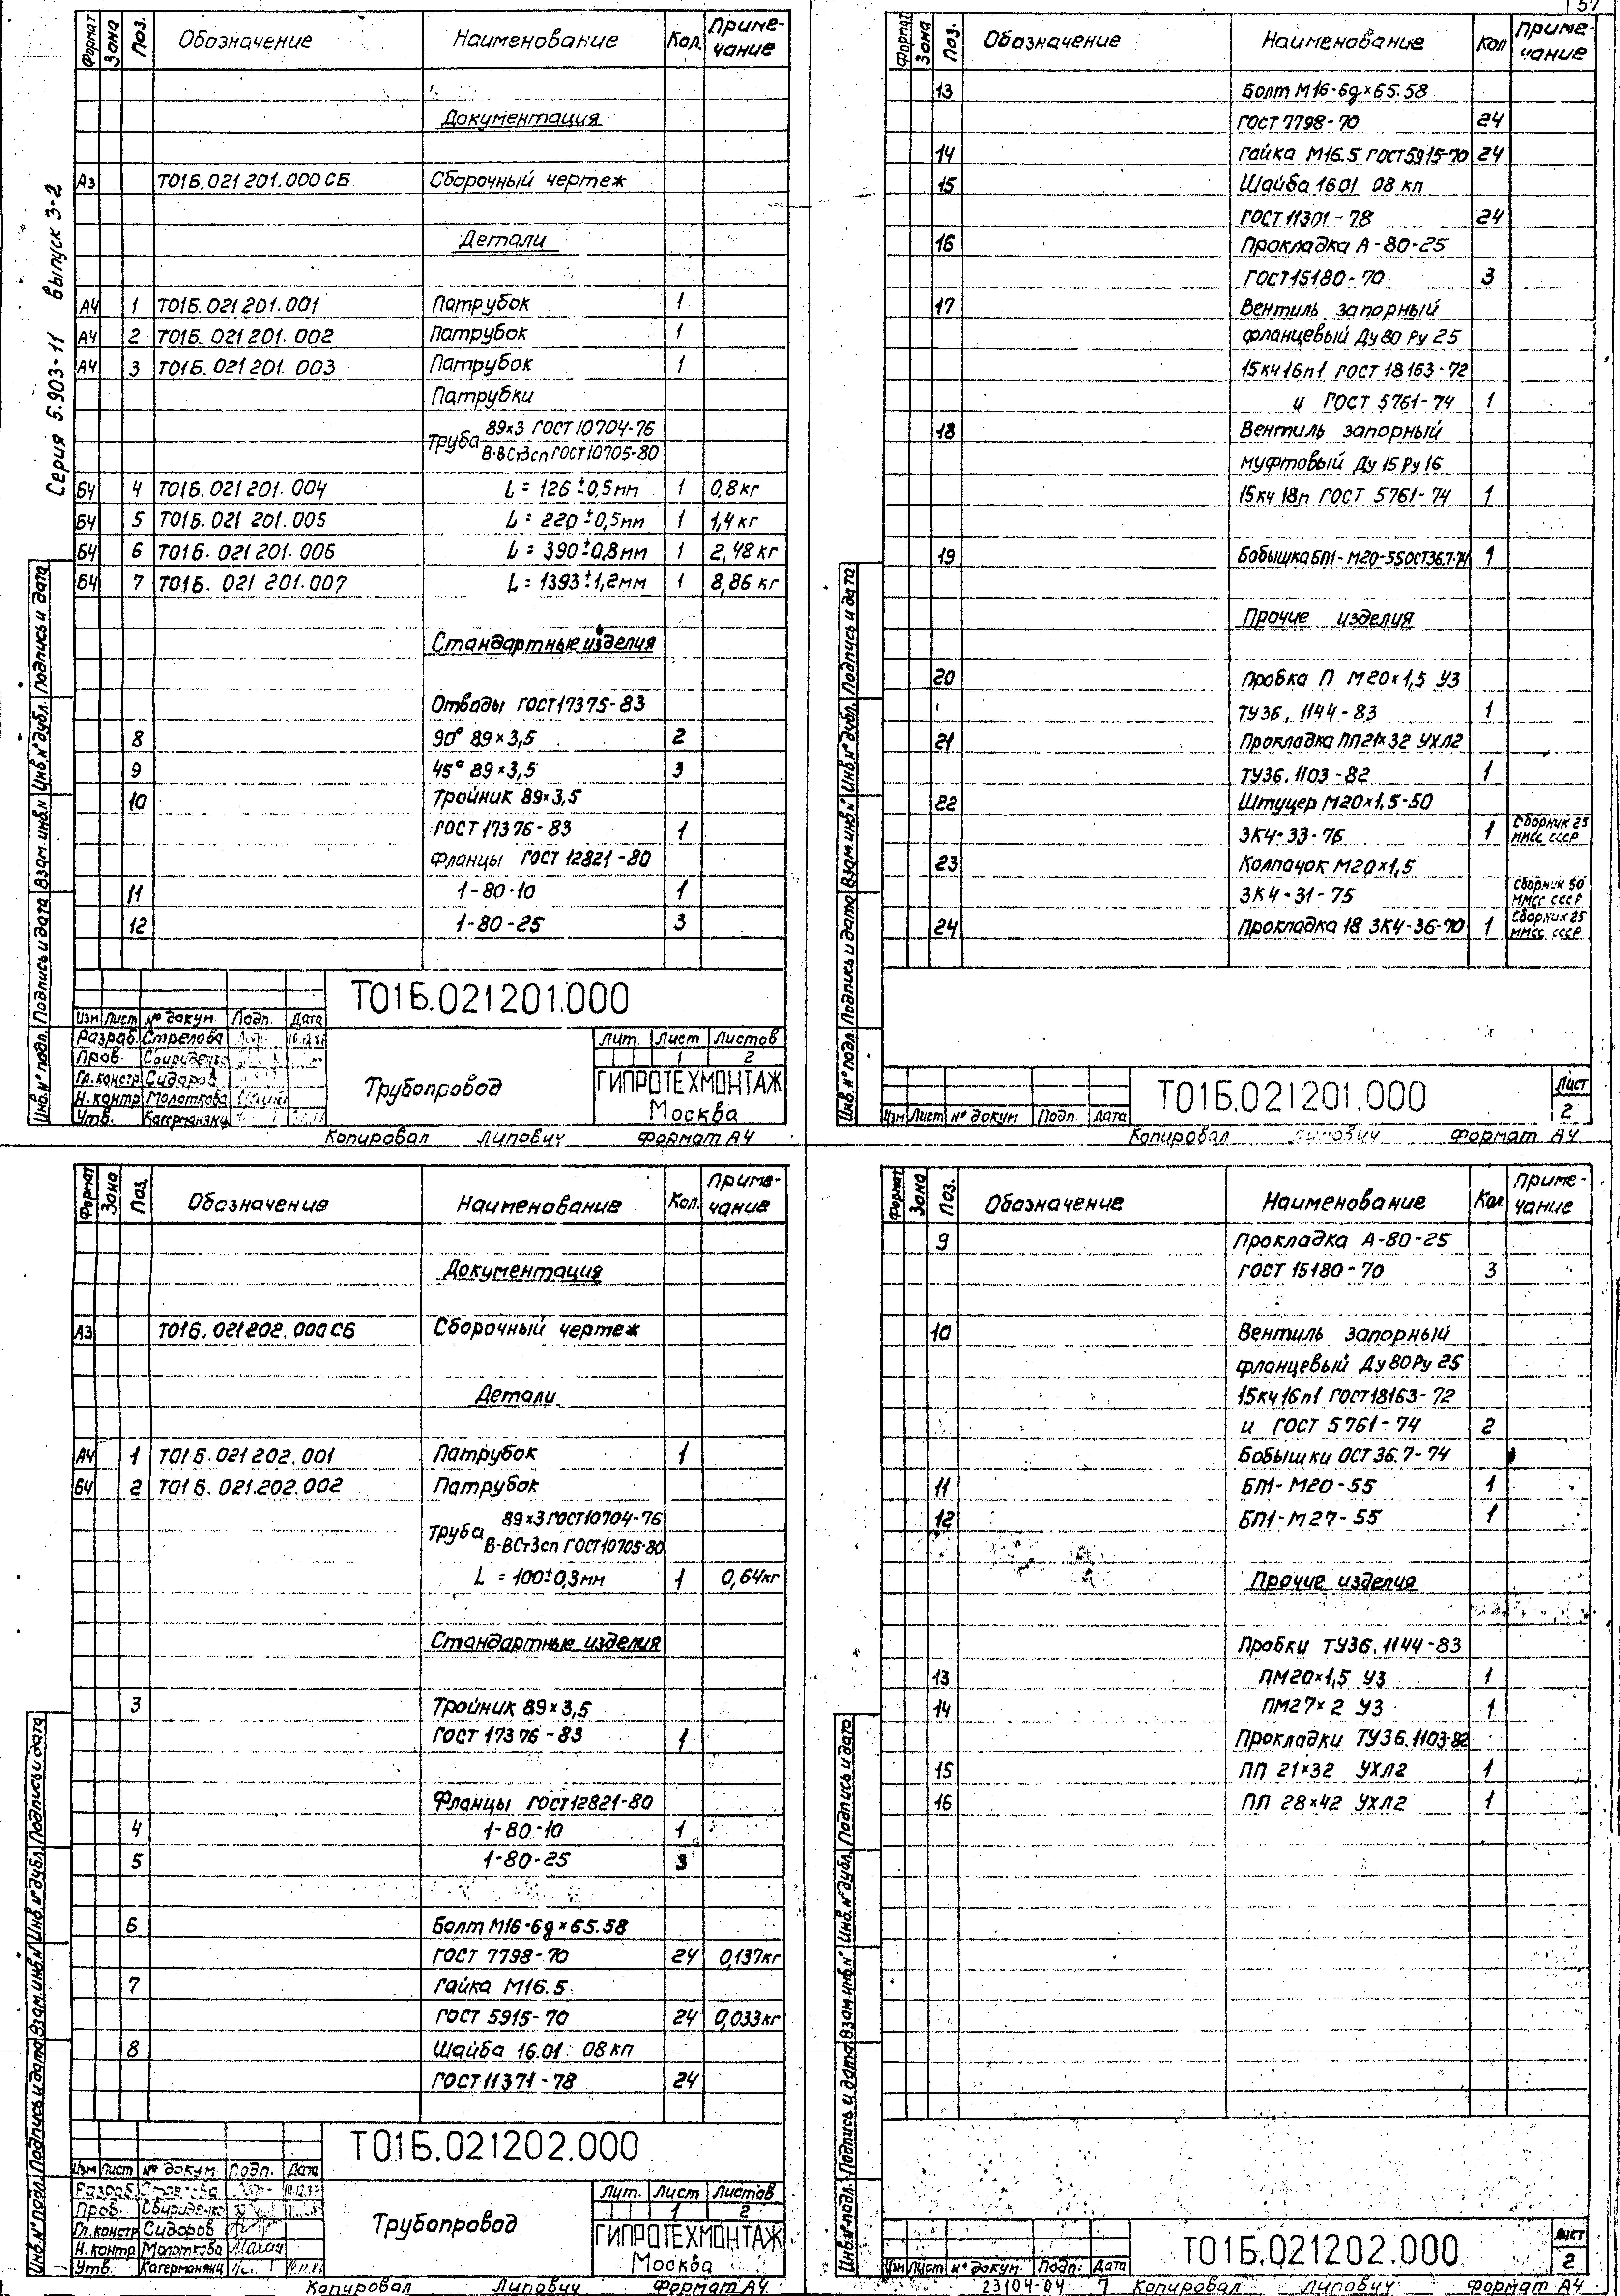 57
Серия 5.903-11 выпуск 3-2
Формат Зона Поз. Обозначение Наименование Кол. Приме-
чание
Документация
А3 Т01Б.021 201.000 СБ Сборочный чертеж
Детали
А4 1 Т01Б.021 201.001 Патрубок 1
А4 2 Т01Б.021 201.002 Патрубок 1
А4 3 Т01Б.021 201.003 Патрубок 1
Патрубки
Труба 89×3 ГОСТ 10704-76
В-ВСт3сп ГОСТ 10705-80
Б4 4 Т01Б.021 201.004 L = 126 ±0,5мм 1 0,8 кг
Б4 5 Т01Б.021 201.005 L = 220 ±0,5мм 1 1,4 кг
Б4 6 Т01Б.021 201.006 L = 390 ±0,8мм 1 2,48 кг
Б4 7 Т01Б.021 201.007 L = 1393 ±1,2мм 1 8,86 кг
Стандартные изделия
Отводы ГОСТ 17375-83
8 90° 89×3,5 2
9 45° 89×3,5 3
10 Тройник 89×3,5
ГОСТ 17376-83 1
Фланцы ГОСТ 12821-80
11 1-80-10 1
12 1-80-25 3
Инв. № подл. Подпись и дата Взам. инв. № Инв. № дубл. Подпись и дата
Т01Б.021201.000
Изм Лист № докум. Подп. Дата
Разраб. Стрелова
Пров. Свириденко
Гл. констр Сидоров
Н. контр Молоткова
Утв. Кагерманянц
Трубопровод
Лит. Лист Листов
1 2
ГИПРОТЕХМОНТАЖ
Москва
Копировал Липович Формат А4
Формат Зона Поз. Обозначение Наименование Кол Приме-
чание
13 Болт М16-6g×65.58
ГОСТ 7798-70 24
14 Гайка М16.5 ГОСТ 5915-70 24
15 Шайба 16 01 08 кп
ГОСТ 11301-78 24
16 Прокладка А-80-25
ГОСТ 15180-70 3
17 Вентиль запорный
фланцевый Ду 80 Ру 25
15кч16п1 ГОСТ 18163-72
и ГОСТ 5761-74 1
18 Вентиль запорный
муфтовый Ду 15 Ру 16
15кч 18п ГОСТ 5761-74 1
19 Бобышка БП1-М20-55 ОСТ 36.7-74 1
Прочие изделия
20 Пробка П М20×1,5 У3
ТУ36.1144-83 1
21 Прокладка ПП21×32 УХЛ2
ТУ36.1103-82 1
22 Штуцер М20×1,5-50
ЗК4-33-76 1 Сборник 25
ММСС СССР
23 Колпачок М20×1,5
ЗК4-31-75 Сборник 50
ММСС СССР
24 Прокладка 18 ЗК4-36-70 1 Сборник 25
ММСС СССР
Инв. № подл. Подпись и дата Взам. инв. № Инв. № дубл. Подпись и дата
Изм Лист № докум. Подп. Дата
Т01Б.021201.000
Лист
2
Копировал Липович Формат А4
Формат Зона Поз. Обозначение Наименование Кол. Приме-
чание
Документация
А3 Т01Б.021202.000 СБ Сборочный чертеж
Детали
А4 1 Т01Б.021 202.001 Патрубок 1
Б4 2 Т01Б.021.202.002 Патрубок
Труба 89×3 ГОСТ 10704-76
В-ВСт3сп ГОСТ 10705-80
L = 100±0,3мм 1 0,64кг
Стандартные изделия
3 Тройник 89×3,5
ГОСТ 17376-83 1
Фланцы ГОСТ 12821-80
4 1-80-10 1
5 1-80-25 3
6 Болт М16-6g×65.58
ГОСТ 7798-70 24 0,137кг
7 Гайка М16.5
ГОСТ 5915-70 24 0,033кг
8 Шайба 16.01 08 кп
ГОСТ 11371-78 24
Инв. № подл. Подпись и дата Взам. инв. № Инв. № дубл. Подпись и дата
Т01Б.021202.000
Изм Лист № докум. Подп. Дата
Разраб. Стрелова
Пров. Свириденко
Гл. констр Сидоров
Н. контр Молоткова
Утв. Кагерманянц
Трубопровод
Лит. Лист Листов
1 2
ГИПРОТЕХМОНТАЖ
Москва
Копировал Липович Формат А4
Формат Зона Поз. Обозначение Наименование Кол. Приме-
чание
9 Прокладка А-80-25
ГОСТ 15180-70 3
10 Вентиль запорный
фланцевый Ду 80 Ру 25
15кч16п1 ГОСТ 18163-72
и ГОСТ 5761-74 2
Бобышки ОСТ 36.7-74
11 БП1-М20-55 1
12 БП1-М27-55 1
Прочие изделия
Пробки ТУ36.1144-83
13 ПМ20×1,5 У3 1
14 ПМ27×2 У3 1
Прокладки ТУ36.1103-82
15 ПП 21×32 УХЛ2 1
16 ПП 28×42 УХЛ2 1
Инв. № подл. Подпись и дата Взам. инв. № Инв. № дубл. Подпись и дата
Изм Лист № докум. Подп. Дата
Т01Б.021202.000
Лист
2
23104-04 7 Копировал Липович Формат А4